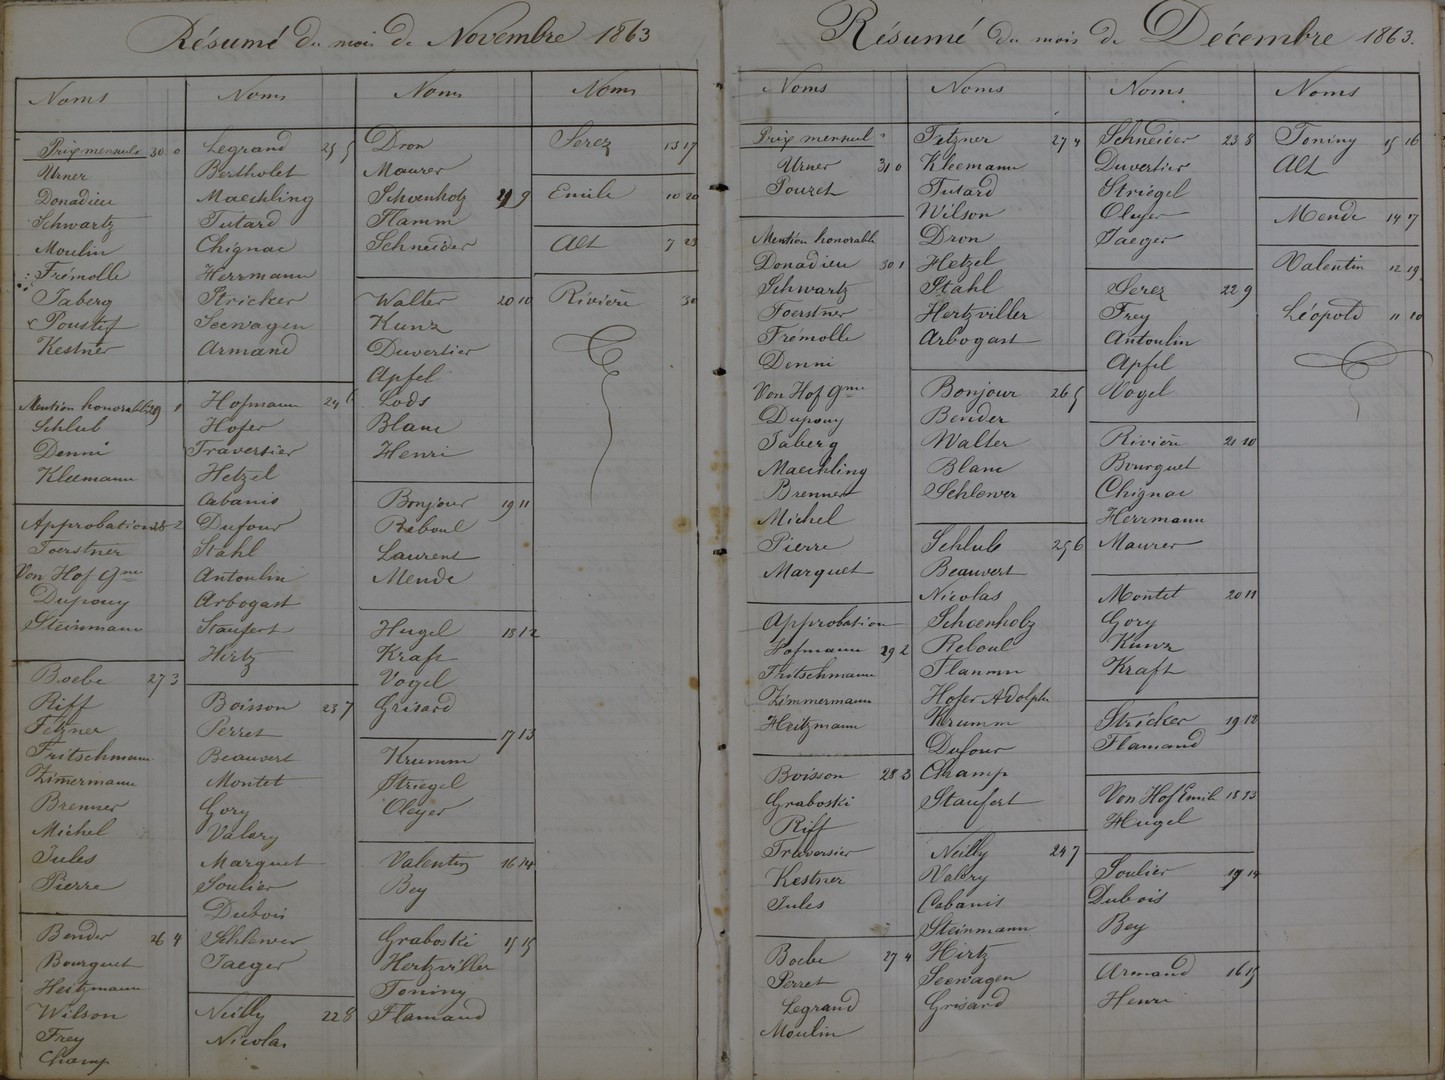 Résumé du mois de Novembre 1863
Noms
Prix mensuel 30 0
Urner
Donadieu
Schwartz
Moulin
Frémolle
Taberg
Poustif
Kestner
Mention honorable 29 1
Schlub
Denni
Kleemann
Approbation 28 2
Foerstner
Von Hof Gme
Dupouy
Steinmann
Boebe 27 3
Riff
Fetzner
Fritschmann
Zimermann
Brenner
Michel
Jules
Pierre
Bender 26 4
Bourguet
Heitzmann
Wilson
Frey
Champ
Noms
Legrand 25 5
Bertholet
Maechling
Tutard
Chignac
Herrmann
Stricker
Seewagen
Armand
Hofmann 24 6
Hofer
Traversier
Hetzel
Cabanis
Dufour
Stahl
Antoulin
Arbogast
Staufert
Hirtz
Boisson 23 7
Perret
Beauvert
Montet
Gory
Valery
Marguet
Soulier
Dubois
Schlewer
Jaeger
Neilly 22 8
Nicolas
Noms
Dron
Maurer
Schoenholz 21 9
Flamm
Schneider
Walter 20 10
Kunz
Duvertier
Apfel
Lods
Blanc
Henri
Bonjour 19 11
Reboul
Laurent
Mende
Hugel 18 12
Kraft
Vogel
Grisard
17 13
Krumm
Striegel
Oleyer
Valentin 16 14
Bey
Graboski 15 15
Hertzviller
Toniny
Flamand
Noms
Serez 13 17
Emile 10 20
Alt 7 23
Rivière 30
Résumé du mois de Décembre 1863.
Noms
Prix mensuel
Urner 31 0
Pouzet
Mention honorable
Donadieu 30 1
Schwartz
Foerstner
Frémolle
Denni
Von Hof Gme
Dupouy
Taberg
Maechling
Brenner
Michel
Pierre
Marguet
Approbation
Hofmann 29 2
Fritschmann
Zimmermann
Heitzmann
Boisson 28 3
Graboski
Riff
Traversier
Kestner
Jules
Boebe 27 4
Perret
Legrand
Moulin
Noms
Fetzner 27 4
Kleemann
Tutard
Wilson
Dron
Hetzel
Stahl
Hertzviller
Arbogast
Bonjour 26 5
Bender
Walter
Blanc
Schlewer
Schlub 25 6
Beauvert
Nicolas
Schoenholz
Reboul
Flamm
Hofer Adolph
Krumm
Dufour
Champ
Staufert
Neilly 24 7
Valery
Cabanis
Steinmann
Hirtz
Seewagen
Grisard
Noms
Schneider 23 8
Duvertier
Striegel
Oleyer
Jaeger
Serez 22 9
Frey
Antoulin
Apfel
Vogel
Rivière 21 10
Bourguet
Chignac
Herrmann
Maurer
Montet 20 11
Gory
Kunz
Kraft
Stricker 19 12
Flamand
Von Hof Emile 18 13
Hugel
Soulier 17 14
Dubois
Bey
Armand 16 15
Henri
Noms
Toniny 15 16
Alt
Mende 14 17
Valentin 12 19
Léopold 11 20